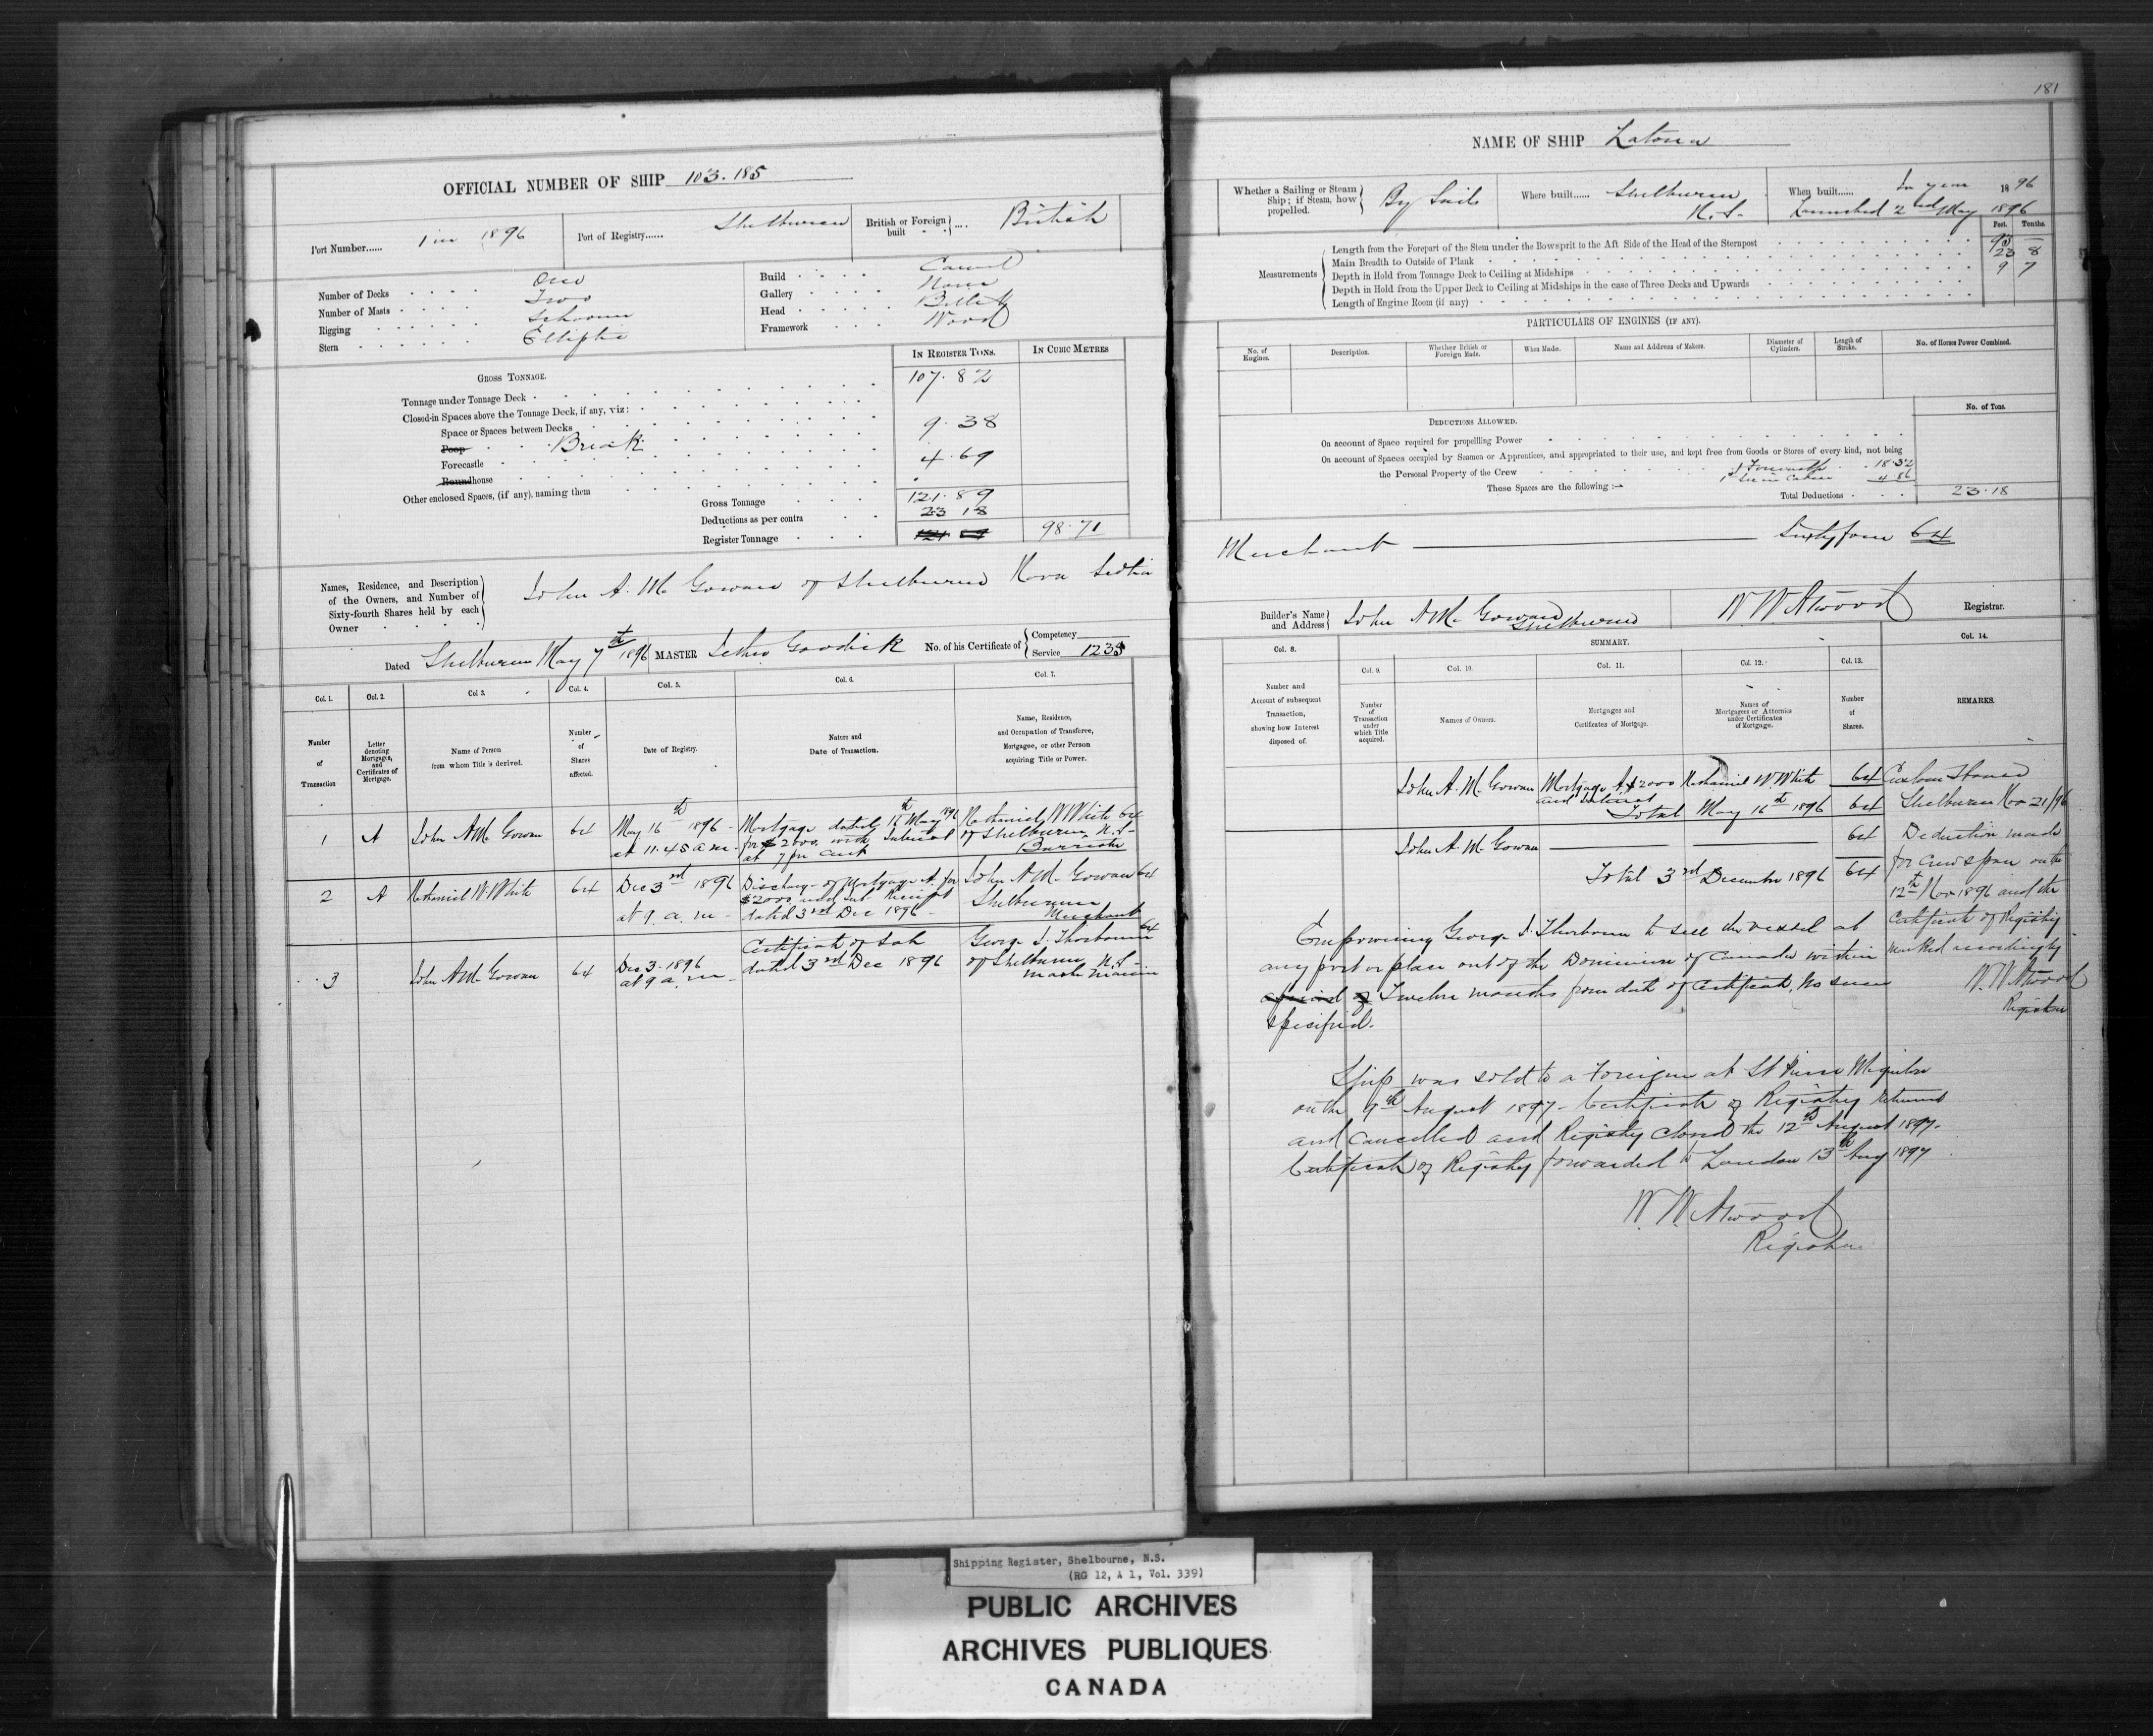 OFFICIAL NUMBER OF SHIP 103.185
Port Number...... 1 in 1896
Port of Registry...... Shelburne
British or Foreign built .... British
Number of Decks One
Number of Masts Two
Rigging Schooner
Stern Elliptic
Build Carvel
Gallery None
Head Billet
Framework Wood
IN REGISTER TONS.
IN CUBIC METRES
GROSS TONNAGE.
Tonnage under Tonnage Deck 107.82
Closed-in Spaces above the Tonnage Deck, if any, viz:
Space or Spaces between Decks
Poop Break 9.38
Forecastle 4.69
Roundhouse
Other enclosed Spaces, (if any), naming them
Gross Tonnage 121.89
Deductions as per contra 23 18
Register Tonnage 121 89 98.71
Names, Residence, and Description
of the Owners, and Number of
Sixty-fourth Shares held by each
Owner
John A. Mc Gowan of Shelburne Nova Scotia
Dated Shelburne May 7th 1896 MASTER No. of his Certificate of Competency
Service 1235
Col. 1. Col. 2. Col. 3. Col. 4. Col. 5. Col. 6. Col. 7.
Number of Transaction
Letter denoting Mortgages, and Certificates of Mortgage.
Name of Person from whom Title is derived.
Number of Shares affected.
Date of Registry.
Nature and Date of Transaction.
Name, Residence, and Occupation of Transferee, Mortgagee, or other Person acquiring Title or Power.
1 A John A Mc Gowan 64
May 16th 1896
at 11.45 a m
Mortgage dated 16th May 1896
for $2000 with Interest
at 7 per cent
Nathaniel W White 64
of Shelburne N.S.
Barrister
2 A Nathaniel W White 64
Dec 3rd 1896
at 9 a. m
Discharge of Mortgage A. for
$2000 and Int Receipt
dated 3rd Dec 1896
John A Mc Gowan 64
Shelburne
Merchant
3 John A Mc Gowan 64
Dec 3. 1896
at 9 a. m
Certificate of Sale
dated 3rd Dec 1896
George S. Thorbourn 64
of Shelburne N.S.
Master Mariner
181
NAME OF SHIP Latona
Whether a Sailing or Steam
Ship; if Steam, how
propelled.
By Sails
Where built...... Shelburne
N.S.
When built...... In year 1896
Launched 2nd May 1896
Feet. Tenths.
Measurements
Length from the Forepart of the Stem under the Bowsprit to the Aft Side of the Head of the Sternpost 95
Main Breadth to Outside of Plank 23 8
Depth in Hold from Tonnage Deck to Ceiling at Midships 9 7
Depth in Hold from the Upper Deck to Ceiling at Midships in the case of Three Decks and Upwards
Length of Engine Room (if any)
PARTICULARS OF ENGINES (IF ANY).
No. of Engines.
Description.
Whether British or Foreign Made.
When Made.
Name and Address of Makers.
Diameter of Cylinders.
Length of Stroke.
No. of Horses Power Combined.
DEDUCTIONS ALLOWED.
No. of Tons.
On account of Space required for propelling Power
On account of Spaces occupied by Seamen or Apprentices, and appropriated to their use, and kept free from Goods or Stores of every kind, not being
the Personal Property of the Crew 18.32
These Spaces are the following:— 4.86
Total Deductions 23.18
Merchant Sixtyfour 64
Builder's Name
and Address
John A Mc Gowan
Shelburne
W W Atwood Registrar.
Col. 8. SUMMARY. Col. 14.
Col. 9. Col. 10. Col. 11. Col. 12. Col. 13.
Number and Account of subsequent Transaction, showing how Interest disposed of.
Number of Transaction under which Title acquired.
Names of Owners.
Mortgages and Certificates of Mortgage.
Names of Mortgagees or Attornies under Certificates of Mortgage.
Number of Shares.
REMARKS.
John A. Mc Gowan Mortgage A. $2000 Nathaniel W. White 64
and Interest
Total May 16th 1896 64
John A. Mc Gowan 64
Total 3rd December 1896 64
Custom House
Shelburne Nov 21/96
Deduction made
for crew space on the
12th Nov 1896 and the
Certificate of Registry
marked accordingly
W. W Atwood
Registrar
Empowering George S. Thorbourn to sell the vessel at
any port or place out of the Dominion of Canada within
a period of Twelve months from date of Certificate. No sum
specified.
Ship was sold to a Foreigner at St Pierre Miquelon
on the 9th August 1897 - Certificate of Registry returned
and Cancelled and Registry closed the 12th August 1897.
Certificate of Registry forwarded to London 13th Aug 1897
W. W. Atwood
Registrar
Shipping Register, Shelbourne, N.S.
(RG 12, A 1, Vol. 339)
PUBLIC ARCHIVES
ARCHIVES PUBLIQUES
CANADA